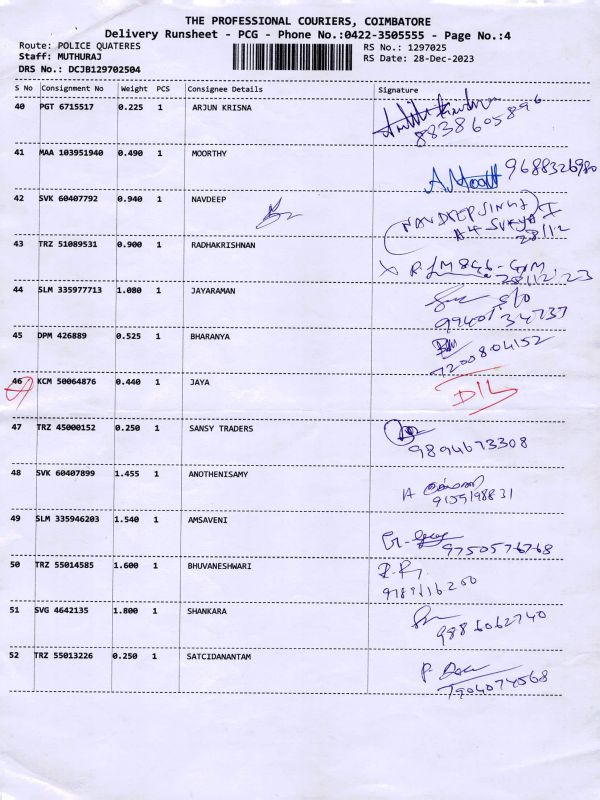 THE PROFESSIONAL COURIERS, COIMBATORE
Delivery Runsheet - PCG - Phone No.:0422-3505555 - Page No.:4
Route: POLICE QUATERES
RS No.: 1297025
Staff: MUTHURAJ
RS Date: 28-Dec-2023
DRS No.: DCJB129702504
S No Consignment No Weight PCS Consignee Details Signature
40 PGT 6715517 0.225 1 ARJUN KRISNA
8838605896
41 MAA 103951940 0.490 1 MOORTHY
9688326980
42 SVK 60407792 0.940 1 NAVDEEP
NAVDEEP SINGH
28/12
43 TRZ 51089531 0.900 1 RADHAKRISHNAN
28/12/23
44 SLM 335977713 1.080 1 JAYARAMAN
S/o
9940134737
45 DPM 426889 0.525 1 BHARANYA
7200804152
46 KCM 50064876 0.440 1 JAYA
D/L
47 TRZ 45000152 0.250 1 SANSY TRADERS
9894673308
48 SVK 60407899 1.455 1 ANOTHENISAMY
49 SLM 335946203 1.540 1 AMSAVENI
9750576768
50 TRZ 55014585 1.600 1 BHUVANESHWARI
51 SVG 4642135 1.800 1 SHANKARA
52 TRZ 55013226 0.250 1 SATCIDANANTAM
7904074568